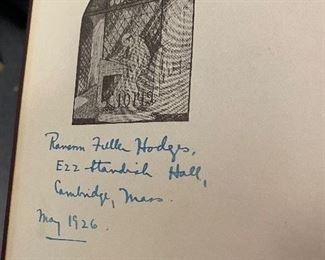 Ransom Fuller Hodges,
E22 Standish Hall,
Cambridge, Mass.
May 1926.